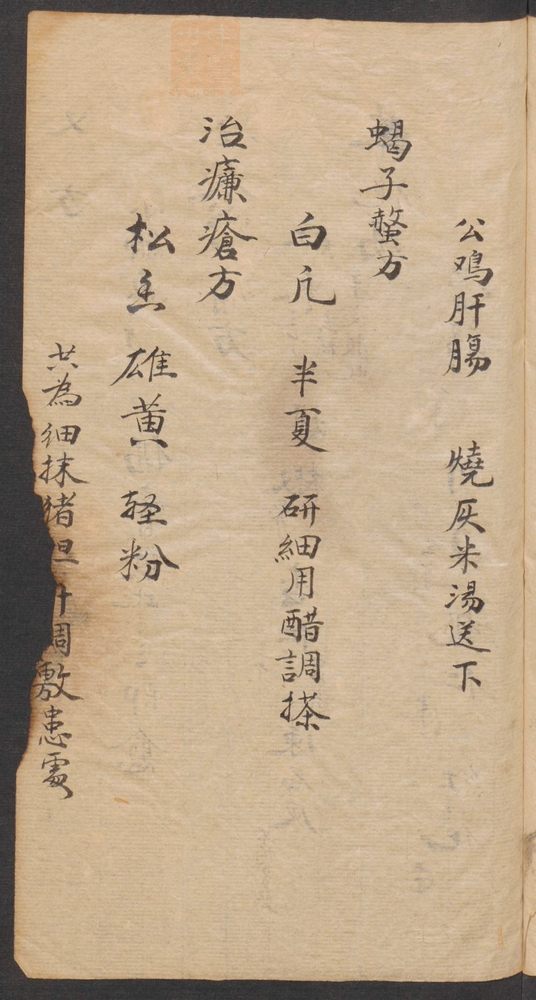 公鸡肝腸　燒灰米湯送下
蝎子螫方
白凡　半夏　研細用醋調搽
治㾾瘡方
松香　雄黃　輕粉
共為細抹猪胆汁調敷患處